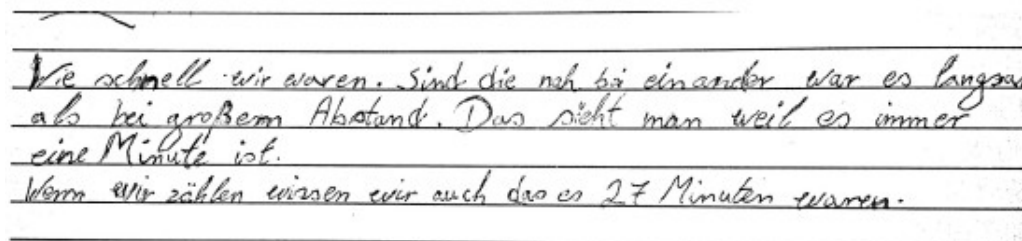 Wie schnell wir waren. Sind die nah bei einander war es langsa
als bei großem Abstand. Das sieht man weil es immer
eine Minute ist.
Wenn wir zählen wissen wir auch das es 27 Minuten waren.